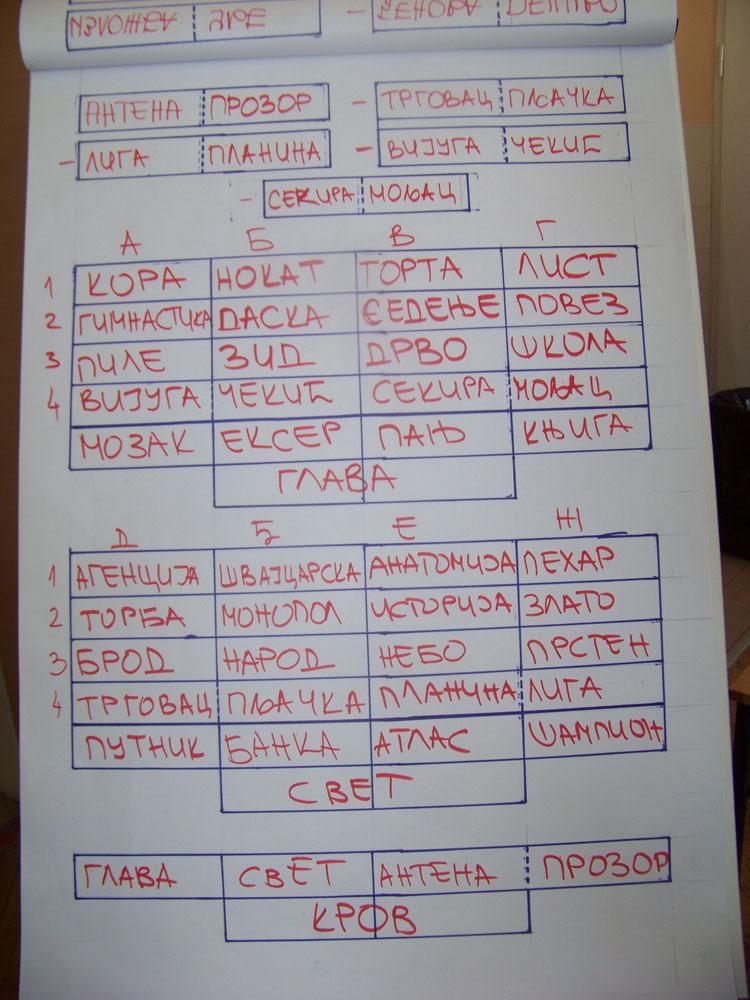 АНТЕНА ПРОЗОР - ТРГОВАЦ ПЉАЧКА
- ЛИГА ПЛАНИНА - ВИЈУГА ЧЕКИЋ
- СЕКИРА МОЉАЦ
А Б В Г
1 КОРА НОКАТ ТОРТА ЛИСТ
2 ГИМНАСТИКА ДАСКА СЕДЕЊЕ ПОВЕЗ
3 ПИЛЕ ЗИД ДРВО ШКОЛА
4 ВИЈУГА ЧЕКИЋ СЕКИРА МОЉАЦ
МОЗАК ЕКСЕР ПАЊ КЊИГА
ГЛАВА
Д Ђ Е Ж
1 АГЕНЦИЈА ШВАЈЦАРСКА АНАТОМИЈА ПЕХАР
2 ТОРБА МОНОПОЛ ИСТОРИЈА ЗЛАТО
3 БРОД НАРОД НЕБО ПРСТЕН
4 ТРГОВАЦ ПЉАЧКА ПЛАНИНА ЛИГА
ПУТНИК БАНКА АТЛАС ШАМПИОН
СВЕТ
ГЛАВА СВЕТ АНТЕНА ПРОЗОР
КРОВ